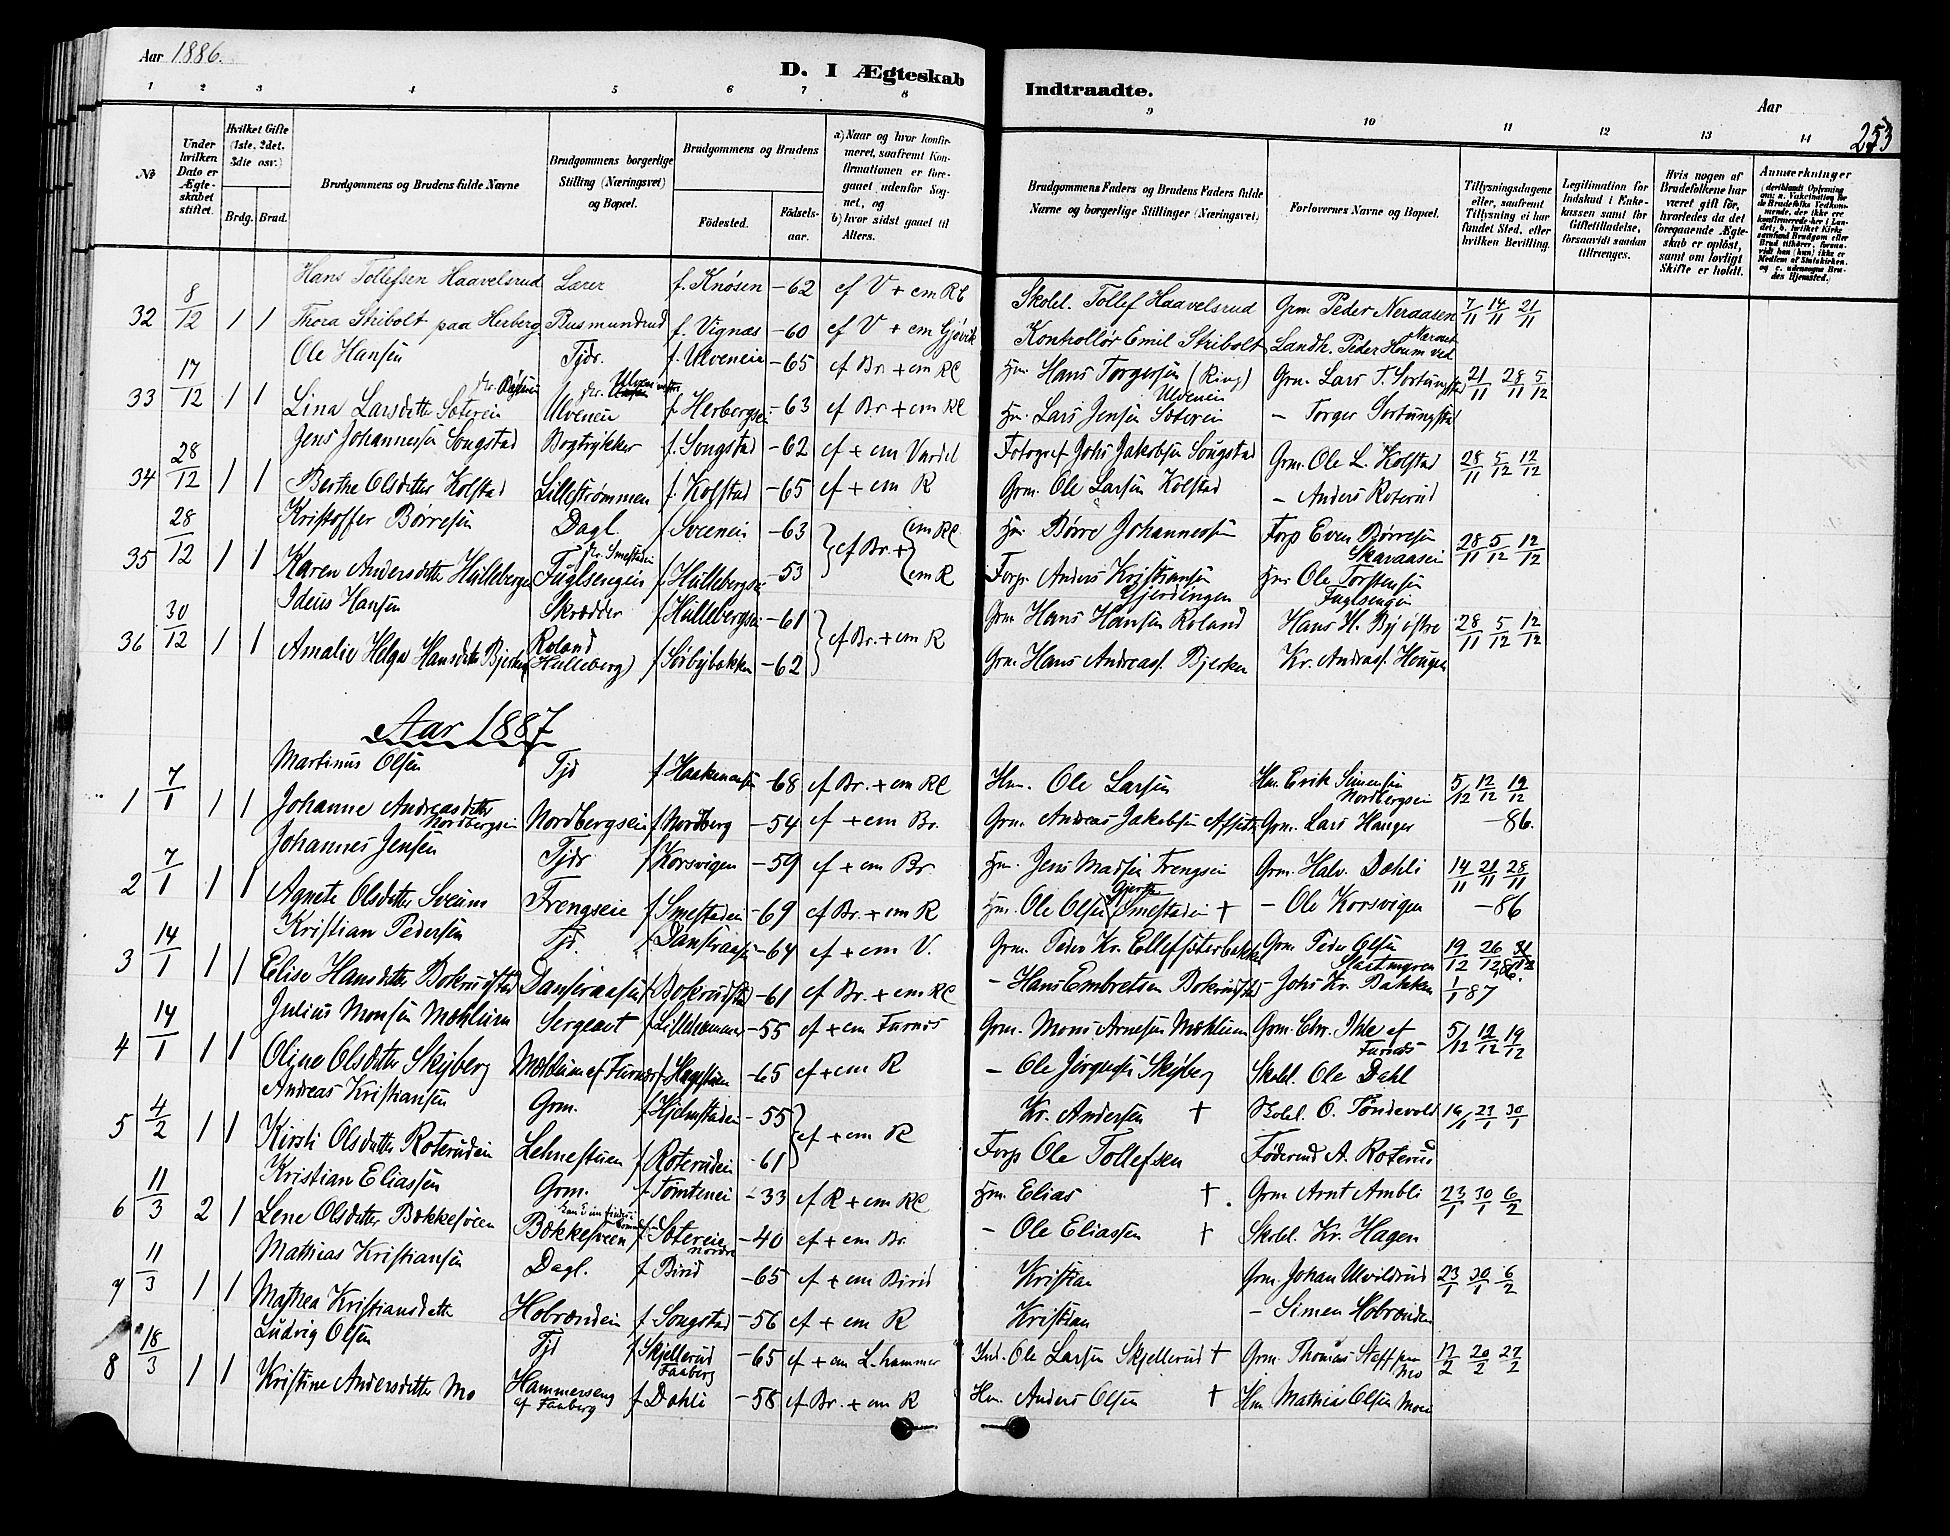 Aar 1886.
D. I Ægteskab
Indtraadte.
Aar
253
1 2 3 4 5 6 7 8 9 10 11 12 13 14
No
Under hvilken Dato er Ægteskabet stiftet.
Hvilket Gifte (1ste, 2det, 3die osv.)
Brdg. Brud.
Brudgommens og Brudens fulde Navne
Brudgommens borgerlige Stilling (Næringsvei) og Bopæl.
Brudgommens og Brudens
Födested. Födselsaar.
a) Naar og hvor konfirmeret, saafremt Konfirmationen er foregaaet udenfor Sognet, og b) hvor sidst gaaet til Alters.
Brudgommens Faders og Brudens Faders fulde Navne og borgerlige Stillinger (Næringsvei).
Forlovernes Navne og Bopæl.
Tillysningsdagene eller, saafremt Tillysning ei har fundet Sted, efter hvilken Bevilling.
Legitimation for Indskud i Enkekassen samt for Giftetilladelse, forsaavidt saadan tiltrænges.
Hvis nogen af Brudefolkene har været gift för, hvorledes da det foregaaende Ægteskab er oplöst, samt om lovligt Skifte er holdt.
Anmærkninger
Hans Tollefsen Haavelsrud Lærer f. Knösen -62 cf V + cm RC Skolel. Tollef Haavelsrud Grm. Peder Neraasen 7/11 14/11 21/11
32 8/12 1 1 Thora Skibolt paa Herberg Busmundrud f. Vignæs -60 cf V + cm Gjövik Kontrollör Emil Skibolt Landh. Peder Houm ved
Ole Hansen Tjdr. f. Ulveneie -65 cf Br. + cm RC Hm. Hans Torgersen (Ring) Ulveneie Grm. Lars T. Sortungstad 21/11 28/11 5/12
33 17/12 1 1 Lina Larsdatter Sæterein Ulveneie f. Herbergseie -63 cf Br + cm RC Hm. Lars Jensen Sæterein - Torger Sortungstad
Jens Johannessen Songstad Bogtrykker f. Songstad -62 cf + cm Vardal Fotograf Johs Jakobsen Songstad Grm. Ole L. Kolstad 28/11 5/12 12/12
34 28/12 1 1 Berthe Olsdatter Kolstad Lilleströmmen f. Kolstad -65 cf + cm R Grm. Ole Larsen Kolstad - Anders Roterud
Kristoffer Börresen Dagl f. Sveeneie -63 cf Br + cm RC Hm Börre Johannessen Forp Even Börresen Skaraasein 28/11 5/12 12/12
35 28/12 1 1 Karen Andersdatter Hulleberge Fuglsengein f. Hullebergseie -53 cm R Forp. Anders Kristiansen Gjerdingen Hm. Ole Torstensen Fuglsengein
Ideus Hansen Skrædder f Hullebergseie -61 cf Br. + cm R Grm Hans Hansen Roland Hans H. By östre 28/11 5/12 12/12
36 30/12 1 1 Amalie Helga Hansdatter Bjerke Roland (Hulleberg) f Sörbybakken -62 Grm. Hans Andreasf. Bjerken Kr. Andreasf. Hougen
Aar 1887
Martinus Olsen Tjd f Haakenaasen -68 cf Br. + cm RC Hm. Ole Larsen Hm Erik Simensen Nordbergseie 5/12 12/12 19/12
1 7/1 1 1 Johanne Andreasdatter Nordbergseie Nordbergseie f Nordberg -54 cf + cm Br. Grm. Andreas Jakobsen Grm. Lars Hanger -86.
Johannes Jensen Tjdr f Korsvigen -59 cf + cm Br Hm. Jens Madsen Frengseie Grm. Halv. Dæhli 14/11 21/11 28/11
2 7/1 1 1 Agnete Olsdatter Sveum Frengseie f Smestadeie -69 cf Br. + cm R Hm. Ole Olsen Smestadein † - Ole Korsvigen -86
Kristian Pedersen Tjd. -64 cf + cm V. Grm. Peder Kr. Grm. Peder Olsen 19/12 26/12
3 14/1 1 1 Elise Hansdatter Bokrudstad f Bokrudstad -61 cf Br. + cm RC - Hans Embretsen Bokrudstad - Johs Kr. Bakken 1/1 87
Julius Monsen Mæhlum Sergeant f Lillehammer -55 cf + cm Furnes Grm. Mons Arnesen Mæhlum Grm. Chr. Ihle af Furnæs 5/12 12/12 19/12
4 14/1 1 1 Oline Olsdatter Skyberg Mæhlum af Furnæs f Hagestuen -65 cf + cm R - Ole Jörgensen Skyberg Skolel. Ole Dahl
Andreas Kristiansen Grm. f Hjelmstadeie -55 cf + cm R Kr. Andersen † Skolel. O. Töndevold 16/1 23/1 30/1
5 4/2 1 1 Kirsti Olsdatter Roterudein Lehnestuen f Roterudein -61 Forp Ole Tollefsen Föderaad A. Roterud
Kristian Eliassen Grm. f Tömteneie -33 cf R + cm RC Hm. Elias †. Grm Arnt Ambli 23/1 30/1 6/2
6 11/3 2 1 Lene Olsdatter Bækkesveen Bækkesveen f Sötereie nordre -40 cf + cm Br. - Ole Eliassen † Skolel. Kr. Hagen
Mathias Kristiansen Dagl. f Birid -65 cf + cm Birid Kristian Grm. Johan Ulvildrud 23/1 30/1 6/2
7 11/3 1 1 Mathea Kristiansdatter Hobrænden f. Songstad -56 cf + cm R Kristian - Simen Hobrænden
Ludvig Olsen Tjd f Skjellerud Faaberg -65 cf + cm L.hammer Ind. Ole Larsen Skjellerud † Grm. Thomas Steffsen Mo 13/2 20/2 27/2
8 18/3 1 1 Kristine Andersdatter Mo Hammerseng af Faaberg f Dahli -58 cf Br. + cm R Hm. Anders Olsen † Hm Mathias Olsen Moeie